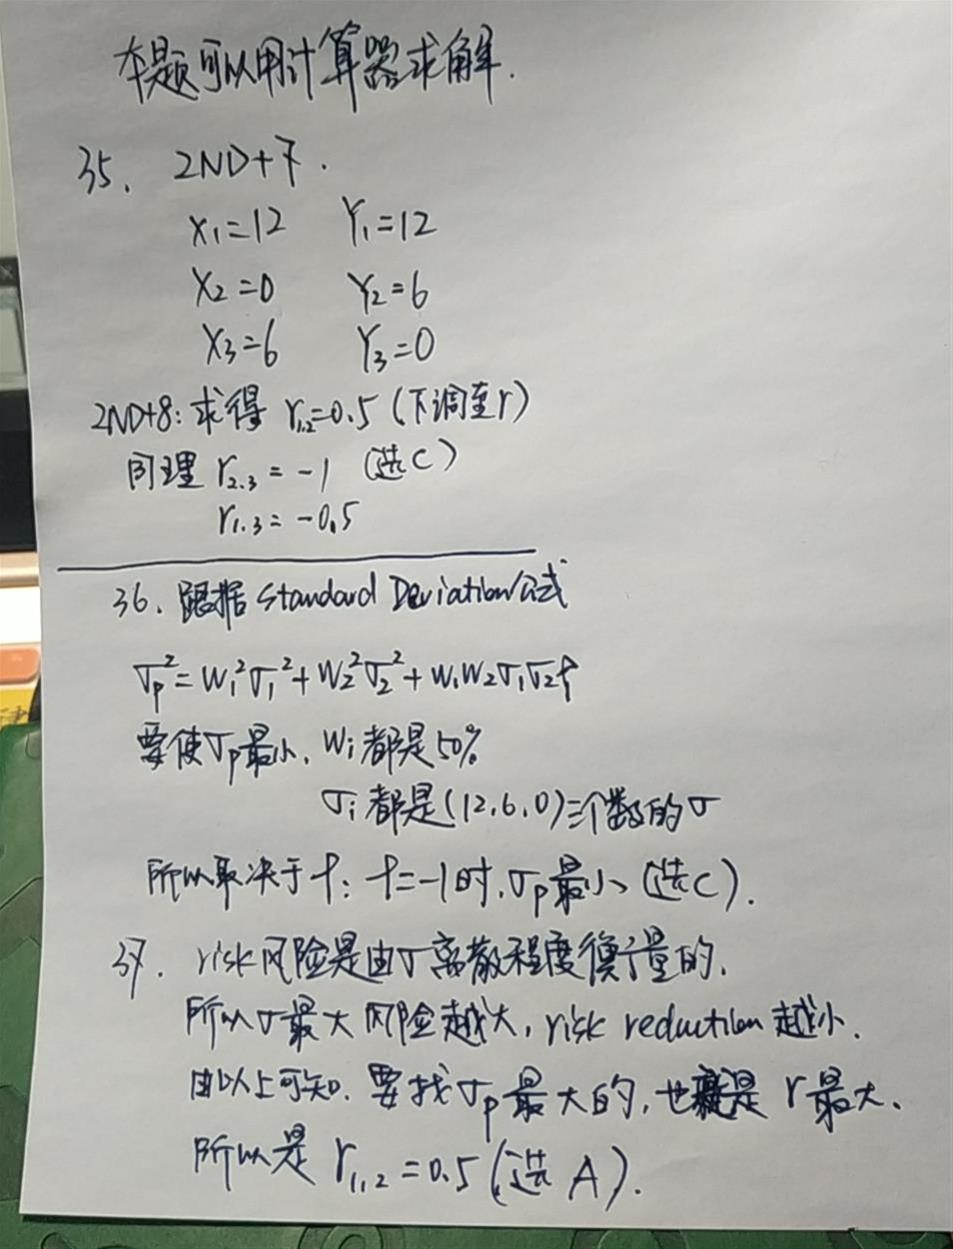 本题可以用计算器求解.
35. 2ND+7.
X₁=12 Y₁=12
X₂=0 Y₂=6
X₃=6 Y₃=0
2ND+8: 求得 r₁,₂=0.5 (下调至r)
同理 r₂.₃ = -1 (选C)
r₁.₃ = -0.5
36. 跟据 Standard Deviation公式
σp²=W₁²σ₁²+W₂²σ₂²+W₁W₂σ₁σ₂ρ
要使σp最小, Wi都是50%
σi都是(12,6,0)三个数的σ
所以取决于ρ: ρ=-1时,σp最小 (选C).
37. risk风险是由σ离散程度衡量的,
所以σ最大风险越大, risk reduction越小.
由以上可知, 要找σp最大的, 也就是 r最大.
所以是 r₁,₂=0.5 (选A).